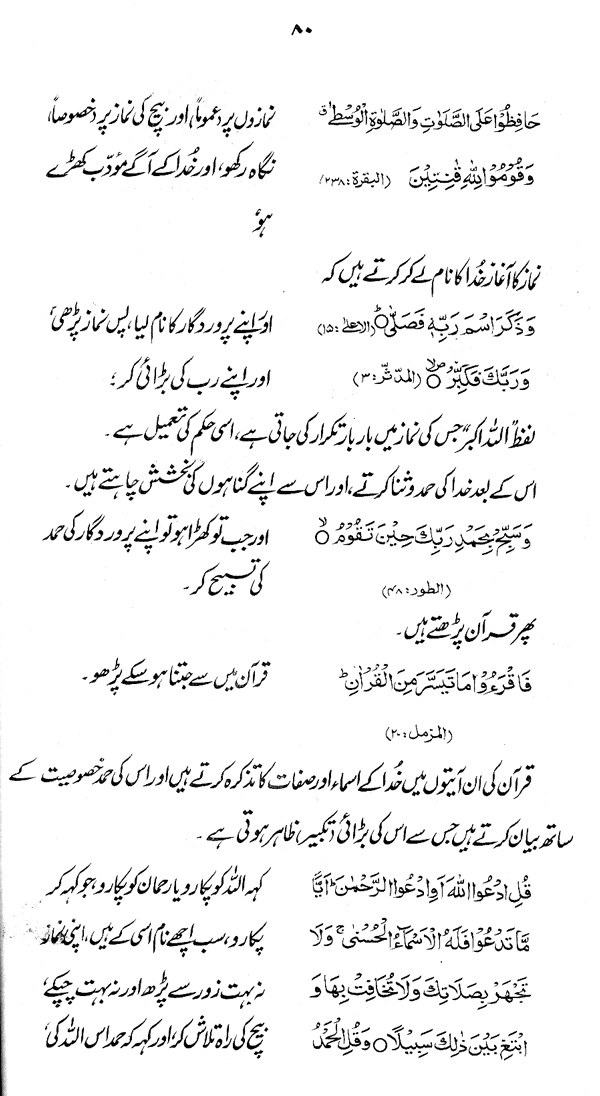 ۸۰
حَافِظُوْا عَلَى الصَّلَوٰتِ وَالصَّلٰوةِ الْوُسْطٰى ق
نمازوں پر (عموماً) اور بیچ کی نماز پر (خصوصاً)
وَقُوْمُوْا لِلّٰهِ قٰنِتِيْنَ (البقرۃ: ۲۳۸)
نگاہ رکھو، اور خدا کے آگے مؤدّب کھڑے
ہو،
نماز کا آغاز خُدا کا نام لے کر کرتے ہیں کہ
وَذَكَرَ اسْمَ رَبِّهٖ فَصَلّٰى ○ (الاعلیٰ: ۱۵)
اور اپنے پروردگار کا نام لیا، پس نماز پڑھی،
وَرَبَّكَ فَكَبِّرْ ○ (المدثر: ۳)
اور اپنے رب کی بڑائی کر؛
لفظ "اللہ اکبر" جس کی نماز میں بار بار تکرار کی جاتی ہے، اسی حکم کی تعمیل ہے۔
اس کے بعد خدا کی حمد و ثنا کرتے، اور اس سے اپنے گناہوں کی بخشش چاہتے ہیں۔
وَسَبِّحْ بِحَمْدِ رَبِّكَ حِيْنَ تَقُوْمُ ○
اور جب تو کھڑا ہو تو اپنے پروردگار کی حمد
(الطور: ۴۸)
کی تسبیح کر۔
پھر قرآن پڑھتے ہیں۔
فَاقْرَءُوْا مَا تَيَسَّرَ مِنَ الْقُرْاٰنِ ط
قرآن میں سے جتنا ہو سکے پڑھو۔
(المزمل: ۲۰)
قرآن کی ان آیتوں میں خُدا کے اسماء اور صفات کا تذکرہ کرتے ہیں اور اس کی حمد خصوصیت کے
ساتھ بیان کرتے ہیں جس سے اس کی بڑائی (تکبیر) ظاہر ہوتی ہے۔
قُلِ ادْعُوا اللّٰهَ اَوِ ادْعُوا الرَّحْمٰنَ ط اَيًّا
کہہ اللہ کو پکارو یا رحمان کو پکارو، جو کہہ کر
مَّا تَدْعُوْا فَلَهُ الْاَسْمَآءُ الْحُسْنٰى ج وَلَا
پکارو، سب اچھے نام اسی کے ہیں، اپنی نماز
تَجْهَرْ بِصَلَاتِكَ وَلَا تُخَافِتْ بِهَا وَ
نہ بہت زور سے پڑھ اور نہ بہت چپکے،
ابْتَغِ بَيْنَ ذٰلِكَ سَبِيْلًا ○ وَقُلِ الْحَمْدُ
بیچ کی راہ تلاش کر، اور کہہ کہ حمد اس اللہ کی،